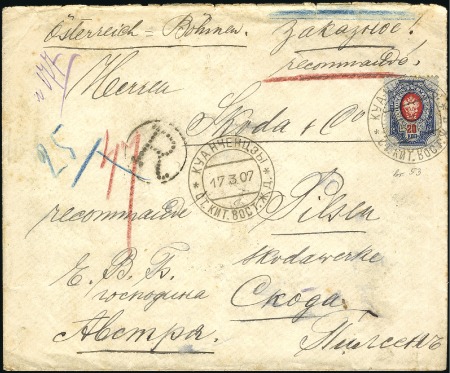 Österreich = Böhmen.
Заказное!
recommandé!
Herren
Skoda & Co
20
КУАНЧЕНДЗЫ
17.3.07
ОТ.КИТ.ВОСТ.Ж.Д.
25
47
R
recommandée
Pilsen
skodawerke
Е. В. Б.
господина
Скода
Австрія.
Пилсенъ